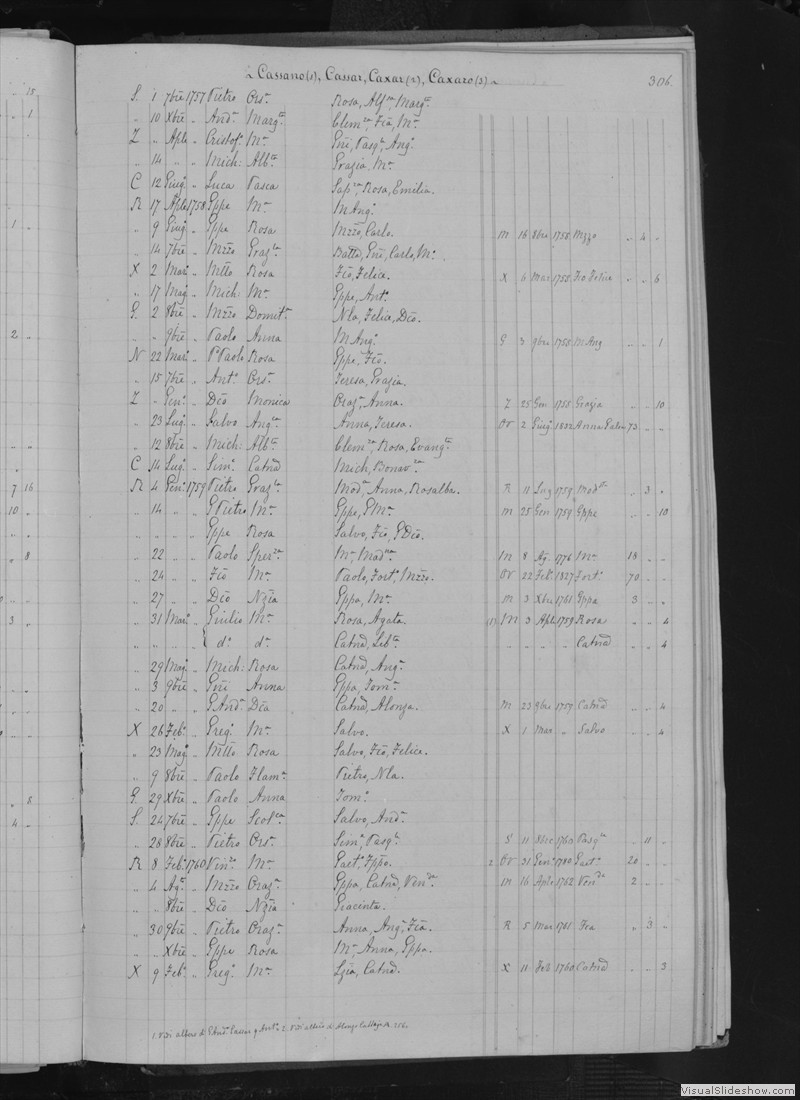 Cassano(1), Cassar, Caxar(2), Caxaro(3) 306.
S. 1 7bre 1757 Pietro Ors.a Rosa, Marg.ta
" 10 Xbre " And.a Marg.ta Clem.za, M.a
Z " Aple " Cristof.o M.a Pasq.le, Ang.o
" 14 " " Mich: Alb.ta Grazia, M.a
C 12 Giug.o " Luca Pasca Rosa, Emilia.
R 17 Aple 1758 Gppe M.a M Ang.o
" 9 Giug.o " Gppe Rosa Mzzo, Carlo. M 16 8bre 1758 Mzzo " 4 "
" 14 7bre " Mzzo Graz.la Batta, Gni, Carlo, M.a
X 2 Mar.o " Mtto Rosa Fco, Felice. X 6 Mar 1758 Fco Felice " " 6
" 17 Mag.o " Mich: M.a Gppe, Ant.o
G. 2 8bre " Mzzo Domit.a Nla, Felice, Dco.
" " 9bre " Paolo Anna M Ang.o G 3 9bre 1758 M Ang " " 1
N 22 Mar.o " P.o Paolo Rosa Gppe, Fco.
" 15 7bre " Ant.o Ors.a Teresa, Grazia.
Z " Gen.o " Dco Monica Oraz.o, Anna. Z 25 Gen 1758 Grazia " " 10
" 23 Lug.o " Salvo Ang.ca Anna, Teresa. Or 2 Giug.o 1832 Anna 73 " "
" 12 8bre " Mich: Alb.ta Clem.za, Rosa, Evang.ta
C 14 Lug.o " Sim.e Catnd Mich, Bonav.ra
R 4 Gen.o 1759 Pietro Graz.la Mod.a, Anna, Rosalba. R 11 Lug 1759 Mod.ta " 3 "
" 14 " " G Pietro M.a Gppe, G M.a M 25 Gen 1759 Gppe " " 10
" " " " Gppe Rosa Salvo, Fco, G Dco.
" 22 " " Paolo Sper.za M.a, Mad.na M 8 Ag. 1776 M.a 18 " "
" 24 " " Fco M.a Paolo, Fort.a, Mzzo. Or 22 Feb. 1827 Fort.a 70 " "
" 27 " " Dco Nzia Gppa, M.a M 3 Xbre 1761 Gppa 3 " "
" 31 Mar.o " Giulio M.a Rosa, Agata. (1) M 3 Aple 1759 Rosa " " 4
" " " " d.o d.a Catnd, Lib.ta " " " " Catnd " " 4
" 29 Mag.o " Mich: Rosa Catnd, Ang.a
" 3 9bre " Gni Anna Gppa, Tom.a
" 20 " " G And.a Dca Catnd, Alonza. M 23 9bre 1759 Catnd " " 4
X 26 Feb.o " Greg.o M.a Salvo. X 1 Mar " Salvo " " 4
" 23 Mag.o " Mtto Rosa Salvo, Fco, Felice.
" 9 8bre " Paolo Flam.a Pietro, Nla.
G. 29 Xbre " Paolo Anna Tom.o
S. 24 7bre " Gppe Scol.ca Salvo, And.a
" 28 8bre " Pietro Ors.a Sim.e, Pasq.le S 11 8bre 1760 Pasq.le " 11 "
R 8 Feb.o 1760 Vin.zo M.a Gaet.o 2 Or 31 Gen.o 1780 Gaet.o 20 " "
" 4 Ag.o " Mzzo Oraz.a Gppa, Catnd, Ven.da M 16 Aple 1762 Ven.da 2 " "
" " 8bre " Dco Nzia Giacinta.
" 30 9bre " Pietro Oraz.a Anna, Ang.a, Fca. R 5 Mar 1761 Fca " 3 "
" " Xbre " Gppe Rosa M.a, Anna, Gppa.
X 9 Feb.o " Greg.o M.a Lzia, Catnd. X 11 Feb 1760 Catnd " " 3
1. Vedi albero di G And.a Cassar q Ant.o 2. Vedi albero di Alonzo
VisualSlideshow.com